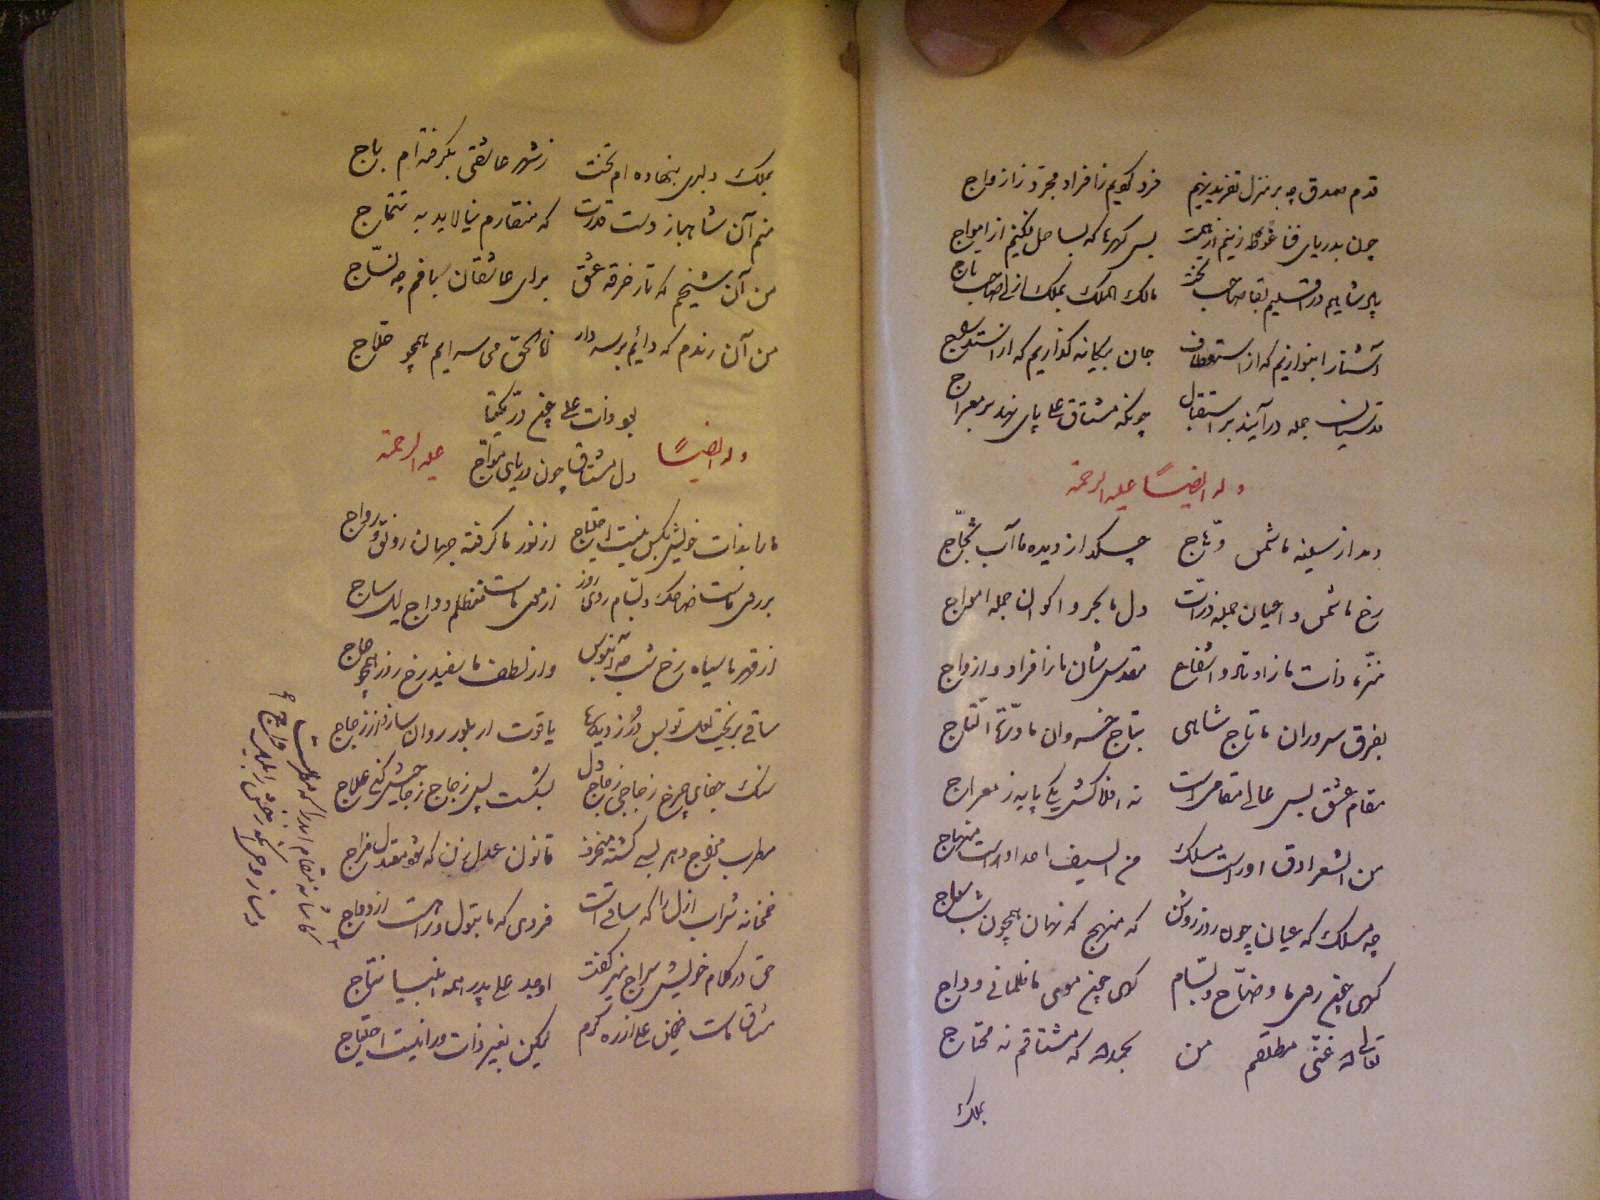 قدم صدق چه بر منزل تفرید نهیم فرد گویم ز افراد مجرد ز ازواج
چون بدریای فنا غوطه زنیم از همت بس گهرها که بساحل فکنیم از امواج
پادشاهیم در اقلیم بقا صاحب تخت مالک الملک بملک ازلی صاحب تاج
آشنا را بنوازیم که از استعطاف جان بیگانه گدازیم که از استدراج
قدسیان جمله در آیند بر استقبال چونکه مشتاق علی پای نهد بر معراج
وله ایضاً علیه الرحمة
دمد از سینه ما شمس وهّاج چسکد از دیده ما آب ثجّاج
رخ ما شمس و اعیان جمله ذرات دل ما بحر و اکوان جمله امواج
منزه ذات ما ز اوتار و اشفاع مقدس شان ما ز افراد و ازواج
بفرق سروران ما تاج شاهی بتاج خسروان ما درّة التاج
مقام عشق بس عالی مقامی است نه افلاکش یکی پایه ز معراج
من الشعر ادق او راست مسلک من السیف احد او راست منهاج
چه مسلک که عیان چون روز روشن که منهج که نهان همچون شب داج
گهی غنچ رمی ما وضاح و بسّام گهی غنچ موی ما ظلمانی و داج
تعالی الله غنی مطلقم من بحمدالله که مشتاقم نه محتاج
بملک
بملک دلبری بنهاده ام تخت ز شهر عاشقی بگرفته ام باج
منم آن شاهباز دست قدرت که منقارم نیالاید به تتماج
من آن شیخم که تار خرقه عشق برای عاشقان بافم چه نسّاج
من آن رندم که دائم بر سر دار انا الحق می سرایم همچو حلّاج
بود ذات علی غنچ درّ یکتا
وله ایضاً دل مشتاق چون دریای موّاج علیه الرحمة
ما را بذات خویش بکس نیست احتیاج از نور ما گرفته جهان رونق و رواج
بر روی ماست ضاحک و بسّام روی روز از موی ماست مظلم و داج لیل ساج
از قهر ما سیاه رخ شب چه آبنوس وز لطف ما سفید رخ روز همچو عاج
ساقی بریخت لعل تو بس دُر ز دیده ها یاقوت از بلور روان ساز از زجاج
سنگ جفای چرخ زجاجی زجاج دل بشکست پس زجاج زجاجیش کن علاج
مطرب مزاج دهر بسی گشته منحرف قانون عدل زن که شود معتدل مزاج
خمخانه شراب ازل را که ساقی است فردی که با بتول وراست ازدواج
حق در کلام خویش سراج منیر گفت اوجد علی پدر همه انبیا نتاج
مشتاق ماست فیض علی از ره کرم لیکن بغیر ذات ورا نیست احتیاج